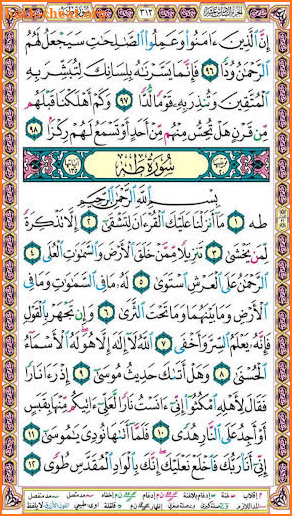 ٣١٢
إِنَّ ٱلَّذِينَ ءَامَنُوا۟ وَعَمِلُوا۟ ٱلصَّـٰلِحَـٰتِ سَيَجْعَلُ لَهُمُ
ٱلرَّحْمَـٰنُ وُدًّا ٩٦ فَإِنَّمَا يَسَّرْنَـٰهُ بِلِسَانِكَ لِتُبَشِّرَ بِهِ
ٱلْمُتَّقِينَ وَتُنذِرَ بِهِۦ قَوْمًا لُّدًّا ٩٧ وَكَمْ أَهْلَكْنَا قَبْلَهُم
مِّن قَرْنٍ هَلْ تُحِسُّ مِنْهُم مِّنْ أَحَدٍ أَوْ تَسْمَعُ لَهُمْ رِكْزًۢا ٩٨
سُورَةُ طه
بِسْمِ ٱللَّهِ ٱلرَّحْمَـٰنِ ٱلرَّحِيمِ
طه ١ مَآ أَنزَلْنَا عَلَيْكَ ٱلْقُرْءَانَ لِتَشْقَىٰٓ ٢ إِلَّا تَذْكِرَةً
لِّمَن يَخْشَىٰ ٣ تَنزِيلًا مِّمَّنْ خَلَقَ ٱلْأَرْضَ وَٱلسَّمَـٰوَٰتِ ٱلْعُلَى ٤
ٱلرَّحْمَـٰنُ عَلَى ٱلْعَرْشِ ٱسْتَوَىٰ ٥ لَهُۥ مَا فِى ٱلسَّمَـٰوَٰتِ وَمَا فِى
ٱلْأَرْضِ وَمَا بَيْنَهُمَا وَمَا تَحْتَ ٱلثَّرَىٰ ٦ وَإِن تَجْهَرْ بِٱلْقَوْلِ
فَإِنَّهُۥ يَعْلَمُ ٱلسِّرَّ وَأَخْفَى ٧ ٱللَّهُ لَآ إِلَـٰهَ إِلَّا هُوَ لَهُ ٱلْأَسْمَآءُ
ٱلْحُسْنَىٰ ٨ وَهَلْ أَتَىٰكَ حَدِيثُ مُوسَىٰٓ ٩ إِذْ رَءَا نَارًا
فَقَالَ لِأَهْلِهِ ٱمْكُثُوٓا۟ إِنِّىٓ ءَانَسْتُ نَارًا لَّعَلِّىٓ ءَاتِيكُم مِّنْهَا بِقَبَسٍ
أَوْ أَجِدُ عَلَى ٱلنَّارِ هُدًى ١٠ فَلَمَّآ أَتَىٰهَا نُودِىَ يَـٰمُوسَىٰٓ ١١
إِنِّىٓ أَنَا۠ رَبُّكَ فَٱخْلَعْ نَعْلَيْكَ إِنَّكَ بِٱلْوَادِ ٱلْمُقَدَّسِ طُوًى ١٢